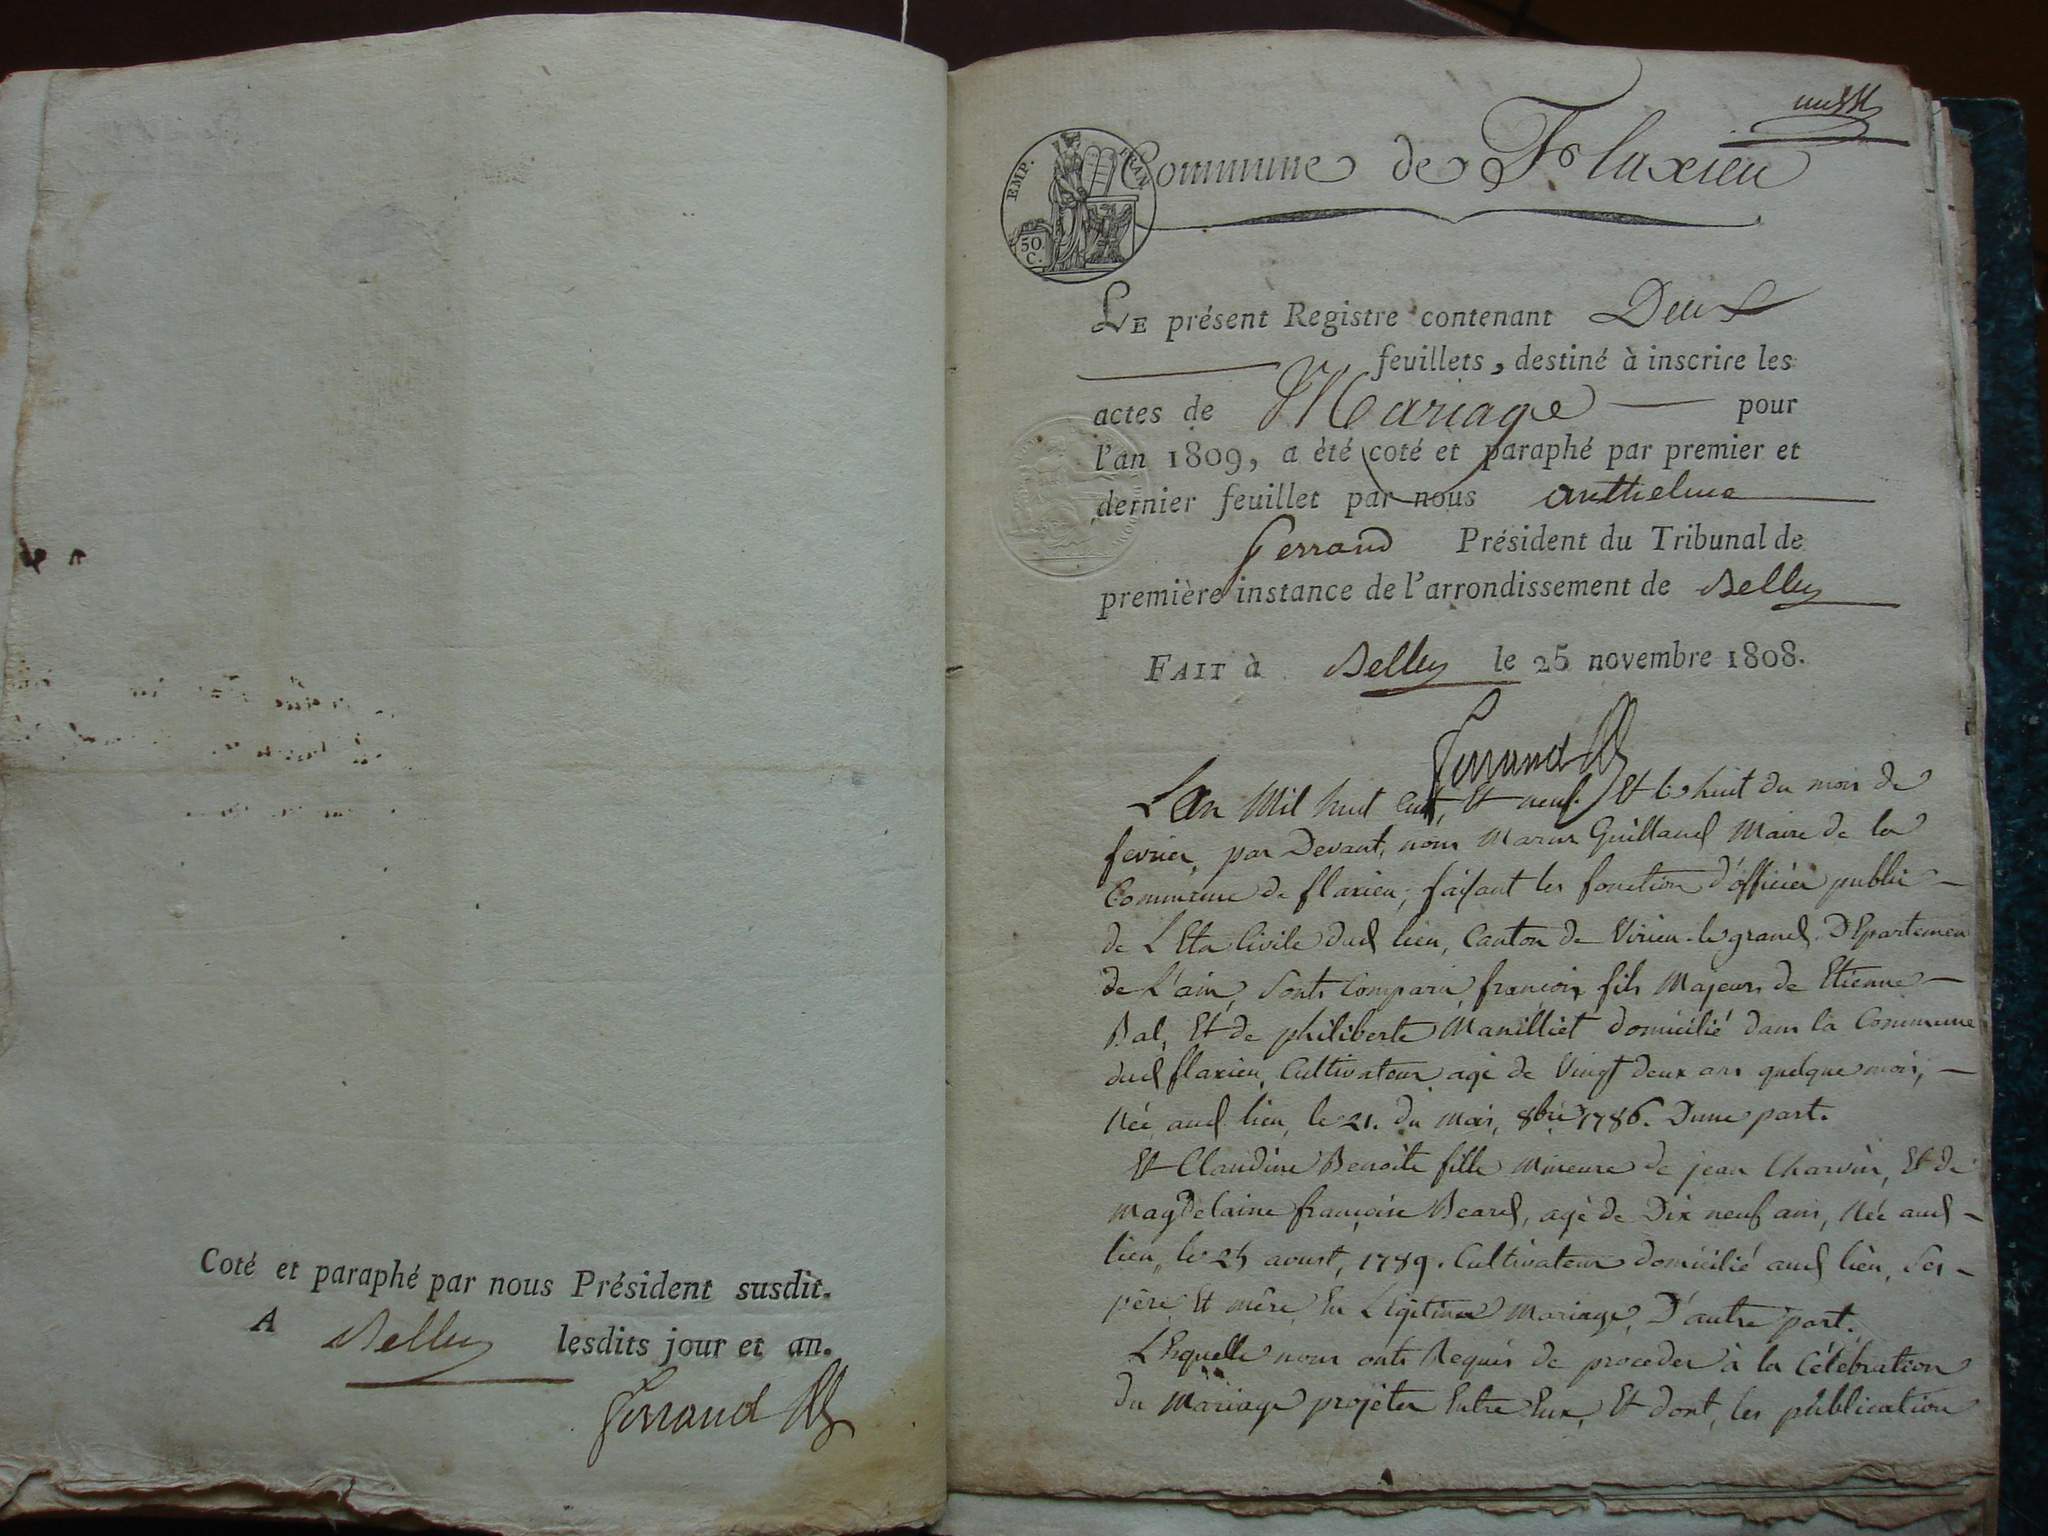 Coté et paraphé par nous Président susdit.
A Belley lesdits jour et an.
Ferrand
Commune de Flaxieu
EMP. FRAN
50 C.
LE présent Registre contenant Deux
feuillets, destiné à inscrire les
actes de Mariage pour
l'an 1809, a été coté et paraphé par premier et
dernier feuillet par nous anthelme
ferrand Président du Tribunal de
première instance de l'arrondissement de Belley
FAIT à Belley le 25 novembre 1808.
Ferrand
L'an Mil huit cent, Et neuf. Et le huit du mois de
fevrier, par Devant, nous Guilland Maire de la
Commune de flaxieu, faisant les fonction d'officier public
de L'Eta Civile dud lieu, Canton de Virieu-le grand, DEpartemen
de L'ain, Sonts Comparu, françois fils Majeurs de Etienne
Bal, Et de philiberte Manilliet domicilié dans la Commune
dud flaxieu, Cultivateur agé de Vingt deux ans quelque mois,
Née aud lieu, le 21. du mois, 8bre 1786. D'une part.
Et Claudine Benoite fille Mineure de jean Charvin, Et de
Magdelaine françoise Beard, agé de Dix neuf ans, Née aud
lieu, le 25 aoust, 1789. Cultivateur domicilié aud lieu, Ses
père Et mère, En Légitime Mariage, D'autre part.
LEsquelle nous onts Requis de proceder à la Célébration
du Mariage projeter Entre Eux, Et dont, les publication